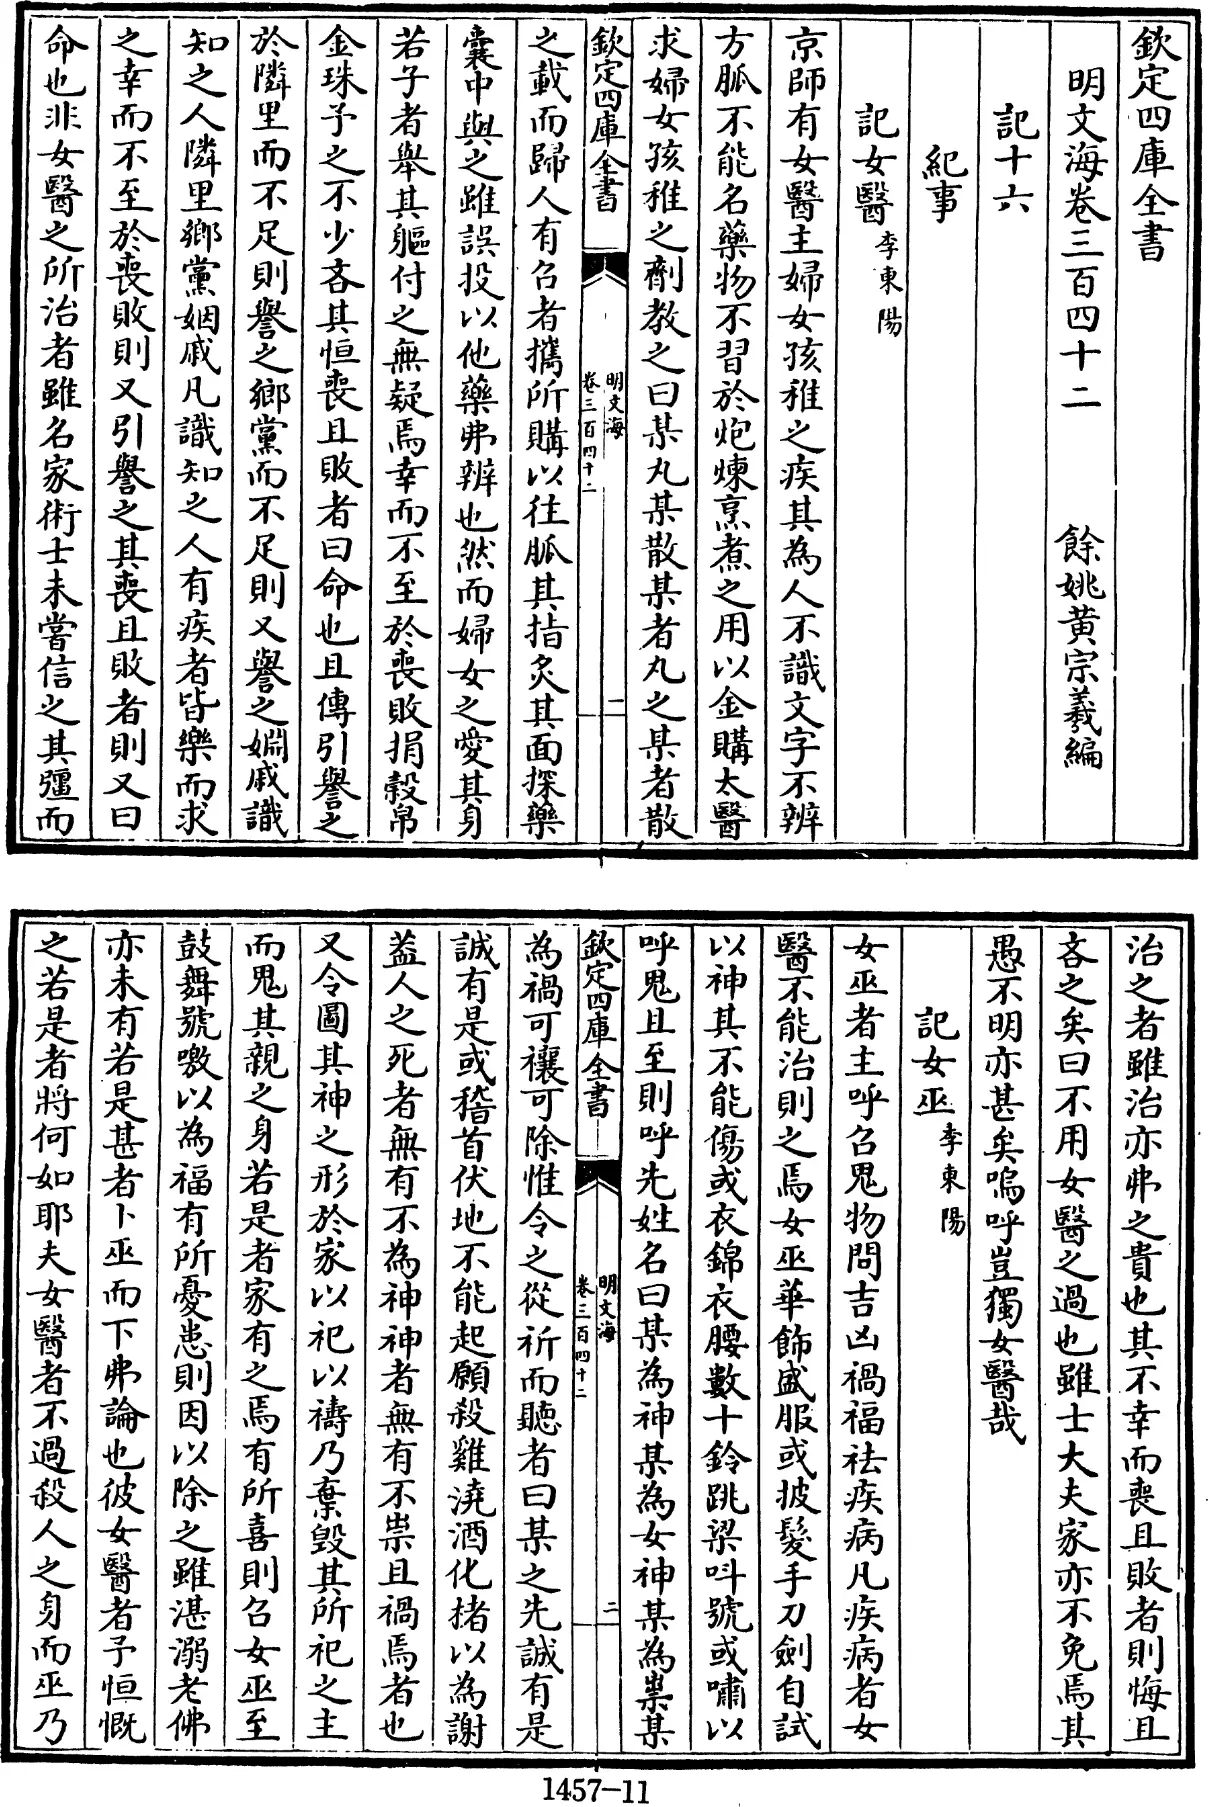 欽定四庫全書
明文海卷三百四十二　餘姚黃宗羲編
記十六
紀事
記女醫 李東陽
京師有女醫主婦女孩稚之疾其為人不識文字不辨
方脈不能名藥物不習於炮煉烹煮之用以金購太醫
求婦女孩稚之劑教之曰某丸某散某者丸之某者散
欽定四庫全書　明文海　卷三百四十二　一
之載而歸人有召者攜所購以往脈其指灸其面探藥
囊中與之雖誤投以他藥弗辨也然而婦女之愛其身
若子者舉其軀付之無疑焉幸而不至於喪敗捐穀帛
金珠予之不少吝其恒喪且敗者曰命也且傳引譽之
於隣里而不足則譽之鄉黨而不足則又譽之婣戚識
知之人隣里鄉黨姻戚凡識知之人有疾者皆樂而求
之幸而不至於喪敗則又引譽之其喪且敗者則又曰
命也非女醫之所治者雖名家術士未嘗信之其彊而
治之者雖治亦弗之貴也其不幸而喪且敗者則悔且
吝之矣曰不用女醫之過也雖士大夫家亦不免焉其
愚不明亦甚矣嗚呼豈獨女醫哉
記女巫 李東陽
女巫者主呼召鬼物問吉凶禍福祛疾病凡疾病者女
醫不能治則之焉女巫華飾盛服或披髮手刀劍自試
以神其不能傷或衣錦衣腰數十鈴跳梁叫號或嘯以
呼鬼且至則呼先姓名曰某為神某為女神某為祟某
欽定四庫全書　明文海　卷三百四十二　二
為禍可禳可除惟令之從祈而聽者曰某之先誠有是
誠有是或稽首伏地不能起願殺雞澆酒化楮以為謝
蓋人之死者無有不為神神者無有不祟且禍焉者也
又令圖其神之形於家以祀以禱乃棄毀其所祀之主
而鬼其親之身若是者家有之焉有所喜則召女巫至
鼓舞號噭以為福有所憂患則因以除之雖湛溺老佛
亦未有若是甚者卜巫而下弗論也彼女醫者予恒慨
之若是者將何如耶夫女醫者不過殺人之身而巫乃
1457-11